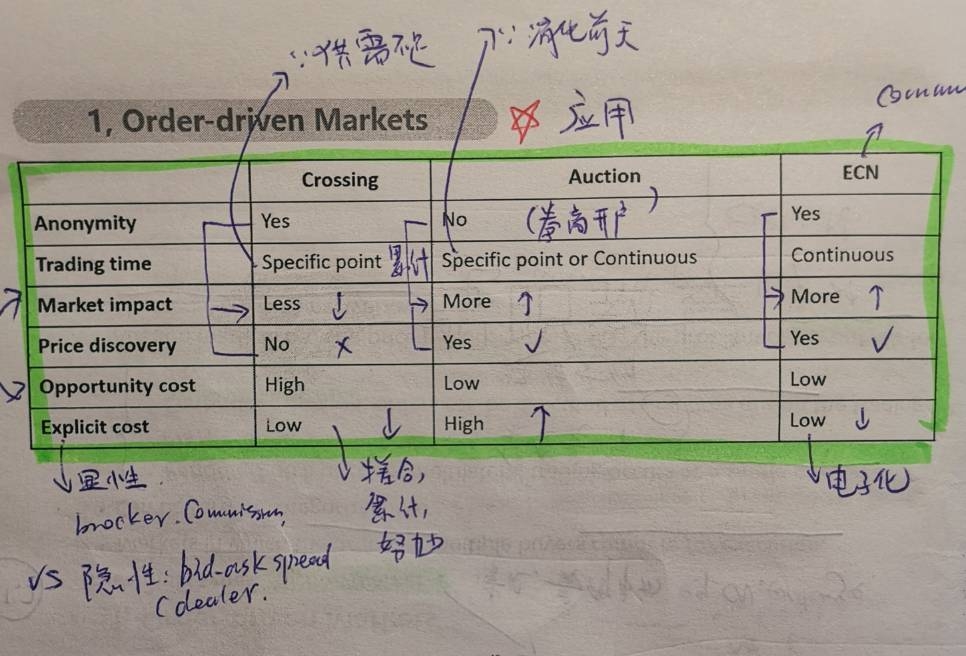 ∵供需
∵消化
1, Order-driven Markets ☆ 应用
Crossing Auction ECN
Anonymity Yes No Yes
Trading time Specific point 累计 Specific point or Continuous Continuous
Market impact Less ↓ More ↑ More ↑
Price discovery No × Yes ✓ Yes ✓
Opportunity cost High Low Low
Explicit cost Low ↓ High ↑ Low ↓
显性
撮合,
电子化
brocker. Commission,
累计,
VS 隐性: bid-ask spread
(dealer.